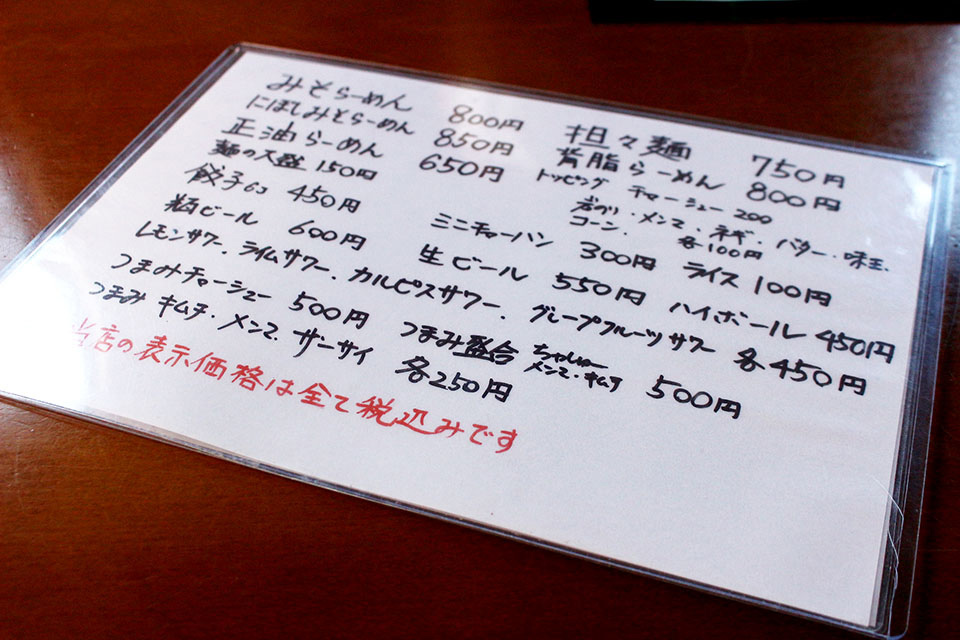 みそらーめん 800円 担々麺 750円
にぼしみそらーめん 850円 背脂らーめん 800円
正油らーめん 650円 トッピング チャーシュー 200
麺の大盛 150円 岩のり・メンマ、ネギ、バター・味玉、
コーン、 各100円
餃子6コ 450円 ミニチャーハン 300円 ライス 100円
瓶ビール 600円 生ビール 550円 ハイボール 450円
レモンサワー、ライムサワー、カルピスサワー、グレープフルーツサワー 各450円
つまみチャーシュー 500円 つまみ盛合 ちゃしゅー メンマ・キムチ 500円
つまみ キムチ・メンマ、ザーサイ 各250円
当店の表示価格は全て税込みです